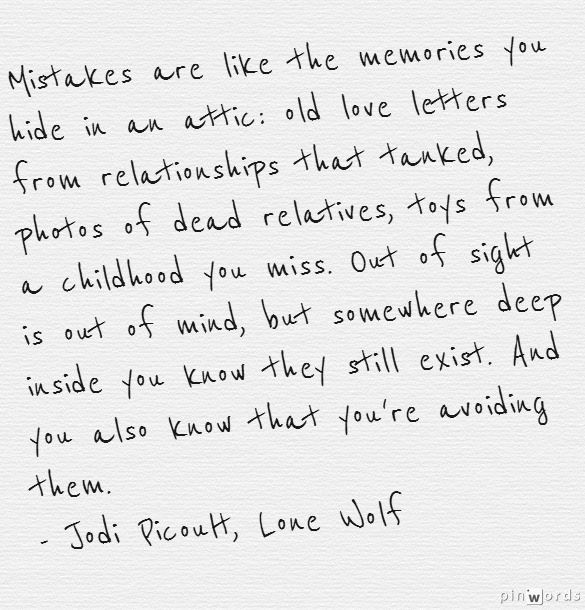 Mistakes are like the memories you
hide in an attic: old love letters
from relationships that tanked,
photos of dead relatives, toys from
a childhood you miss. Out of sight
is out of mind, but somewhere deep
inside you know they still exist. And
you also know that you're avoiding
them.
- Jodi Picoult, Lone Wolf
pinwords